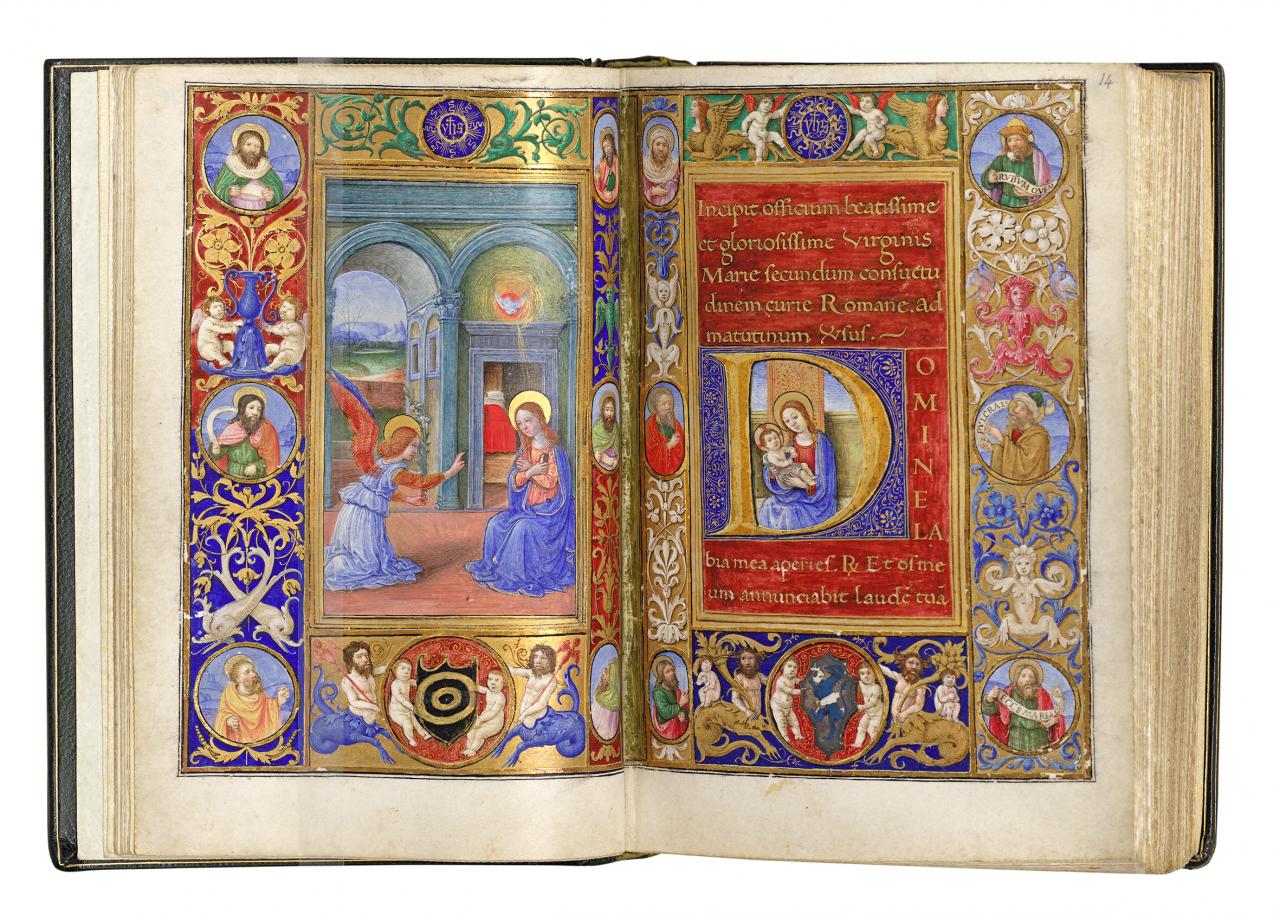 yhs
14
yhs
Incipit officium beatissime
et gloriosissime Virginis
Marie secundum consuetu
dinem curie Romane. ad
matutinum Usus.
DOMINE LA
bia mea aperies. ℞ Et os me
um annunciabit laudē tuā
RVBVM QVEM
ECCE MARIA